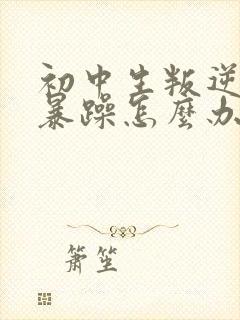 初中生叛逆
暴躁怎麼办
簫笙